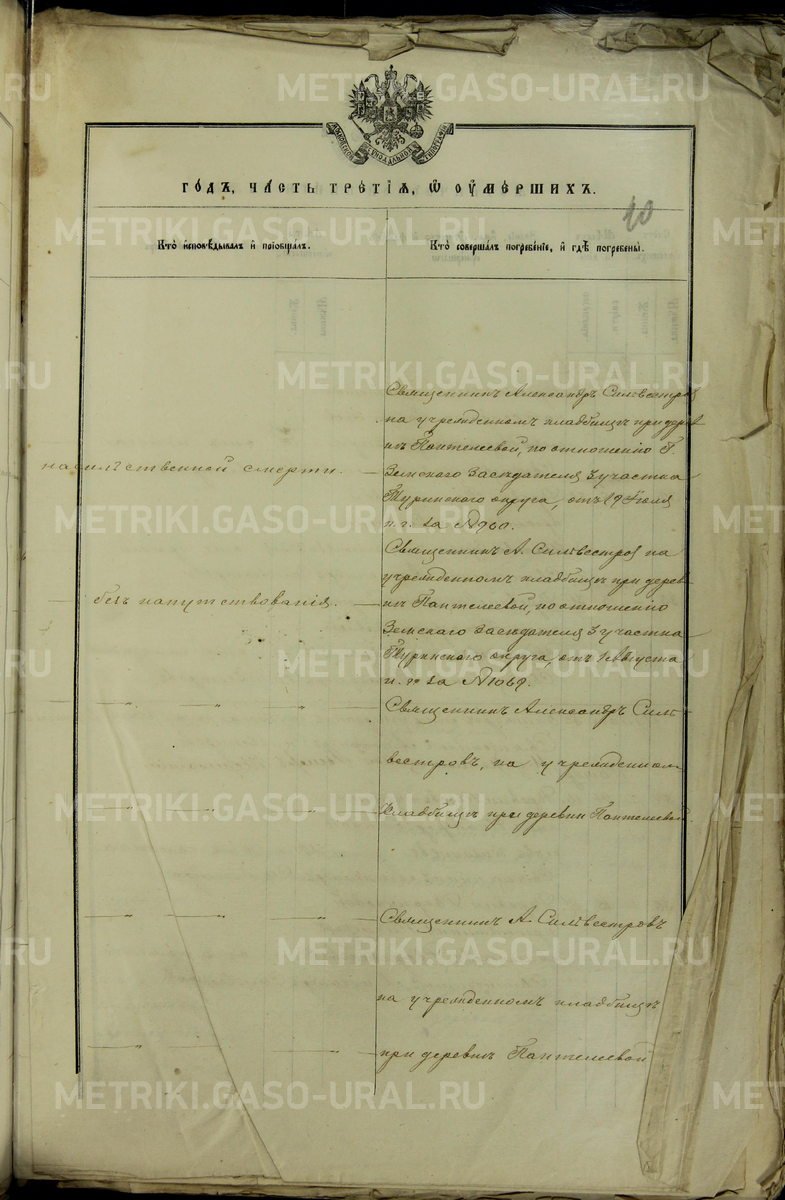 МОСКОВСКОЙ СѴНОДАЛЬНОЙ ТИПОГРАФІИ
ГОДЪ, ЧАСТЬ ТРЕТІЯ, Ѿ ОУМЕРШИХЪ.
10
Кто исповѣдывалъ и пріобщалъ.
Кто совершалъ погребеніе, и гдѣ погребены.
насильственной смерти.
Священникъ Александръ Сильвестровъ
на учрежденномъ кладбищѣ при дерев
нѣ Пантелеевой, по отношенію Г.
Земскаго Засѣдателя 3 участка
Туринскаго округа, отъ 19 Іюля
н. г. за № 960.
безъ напутствованія.
Священникъ А. Сильвестровъ на
учрежденномъ кладбищѣ при дерев
нѣ Пантелеевой, по отношенію
Земскаго Засѣдателя 3 участка
Туринскаго округа, отъ Августа
н. г. за № 1069.
— " — " — " —
Священникъ Александръ Силь
вестровъ, на учрежденном
— " — " — " —
кладбищѣ при деревни Пантелеевой.
— " — " — " —
Священникъ А. Сильвестровъ
на учрежденномъ кладбищѣ
— " — " — " —
при деревнѣ Пантелеевой
METRIKI.GASO-URAL.RU